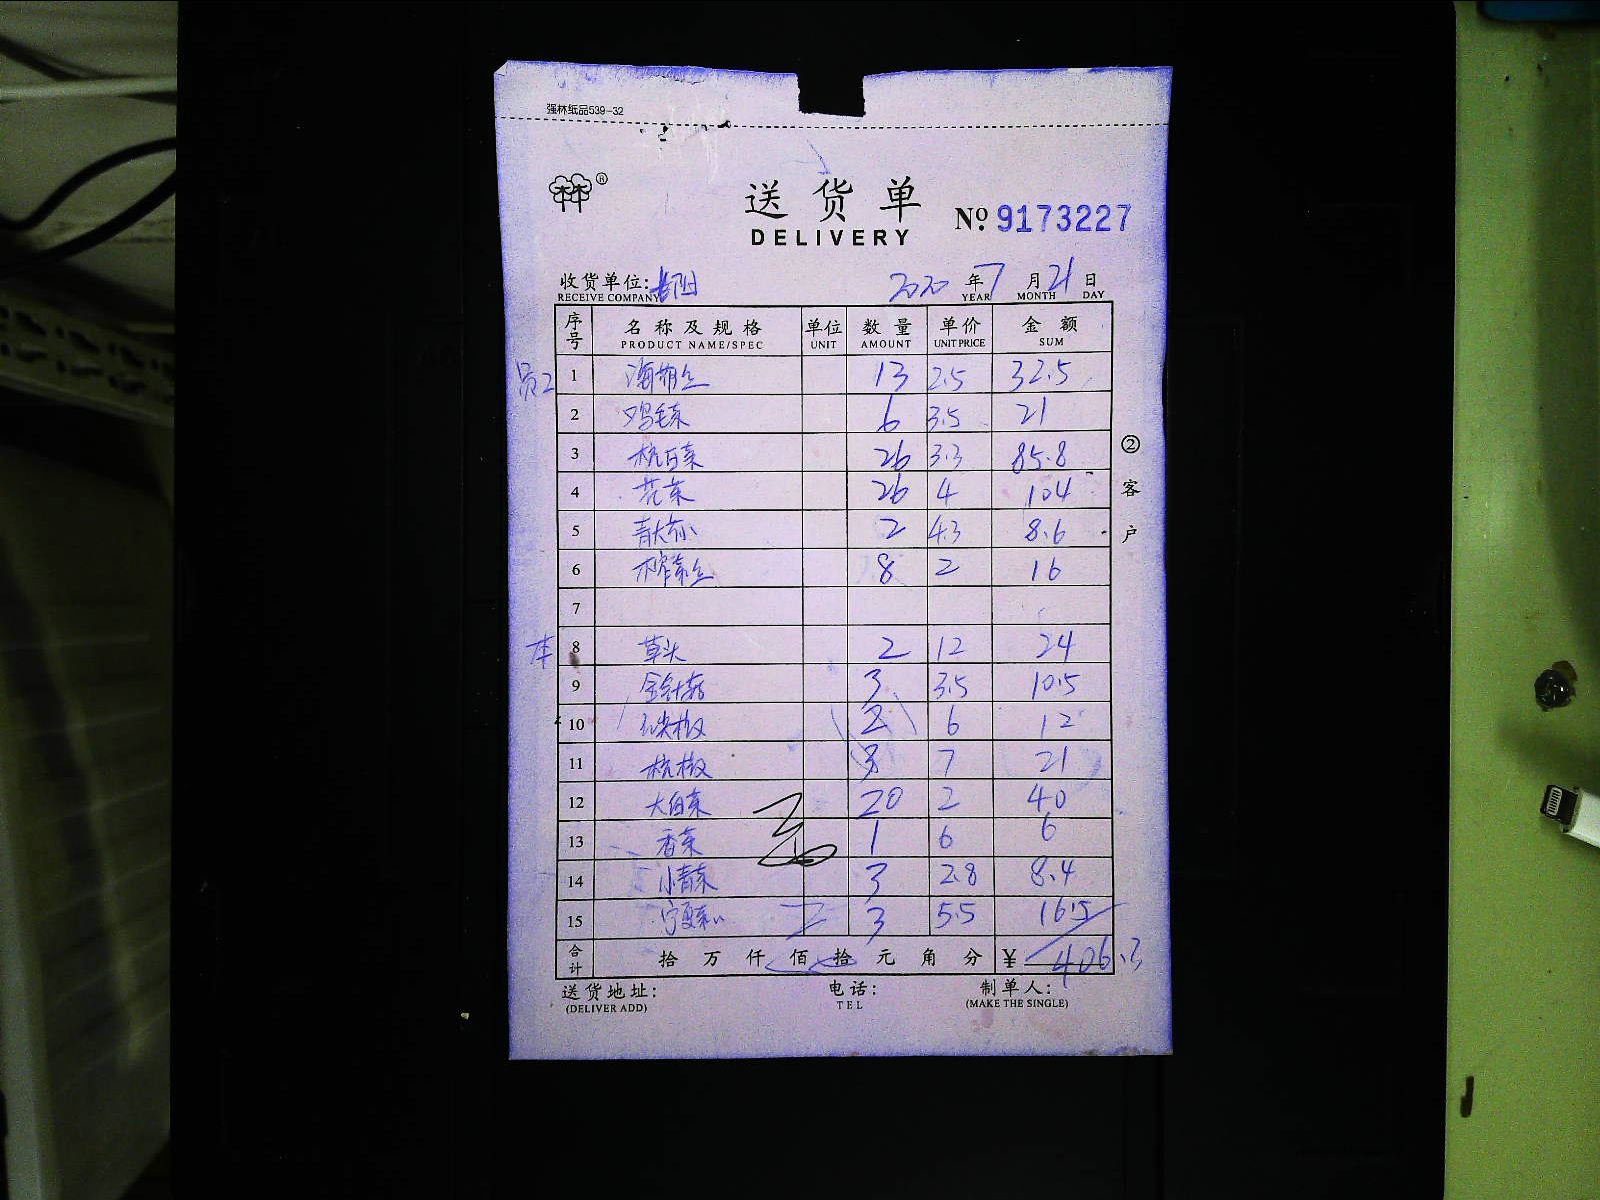 强林纸品539-32
®
送货单
DELIVERY
No. 9173227
收货单位: 长阳 2020 年 7 月 21 日
RECEIVE COMPANY YEAR MONTH DAY
序号 名称及规格 单位 数量 单价 金额
PRODUCT NAME/SPEC UNIT AMOUNT UNIT PRICE SUM
员工 1 海带丝 13 2.5 32.5
2 鸡毛菜 6 3.5 21
3 杭白菜 26 3.3 85.8
4 花菜 26 4 104
5 青大 2 4.3 8.6
6 榨菜丝 8 2 16
7
本 8 草头 2 12 24
9 金针菇 3 3.5 10.5
10 尖椒 2 6 12
11 杭椒 3 7 21
12 大白菜 20 2 40
13 香菜 1 6 6
14 小青菜 3 2.8 8.4
15 宁夏菜心 3 5.5 16.5
合计 拾 万 仟 佰 拾 元 角 分 ¥ 406.3
送货地址: 电话: 制单人:
(DELIVER ADD) TEL (MAKE THE SINGLE)
②客户